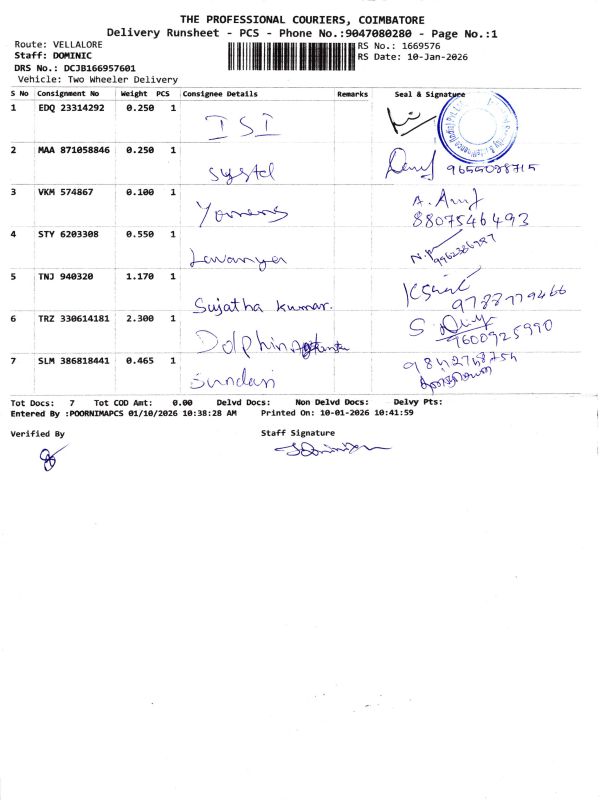 THE PROFESSIONAL COURIERS, COIMBATORE
Delivery Runsheet - PCS - Phone No.:9047080280 - Page No.:1
Route: VELLALORE RS No.: 1669576
Staff: DOMINIC RS Date: 10-Jan-2026
DRS No.: DCJB166957601
Vehicle: Two Wheeler Delivery
S No Consignment No Weight PCS Consignee Details Remarks Seal & Signature
1 EDQ 23314292 0.250 1 ISI
2 MAA 871058846 0.250 1 systel 9655088715
3 VKM 574867 0.100 1 A. Anuf
8807546493
4 STY 6203308 0.550 1 Lavanya
5 TNJ 940320 1.170 1 Sujatha Kumar. 9788779466
6 TRZ 330614181 2.300 1 Dolphin S.
9600925990
7 SLM 386818441 0.465 1 Sundari
Tot Docs: 7 Tot COD Amt: 0.00 Delvd Docs: Non Delvd Docs: Delvy Pts:
Entered By :POORNIMAPCS 01/10/2026 10:38:28 AM Printed On: 10-01-2026 10:41:59
Verified By Staff Signature